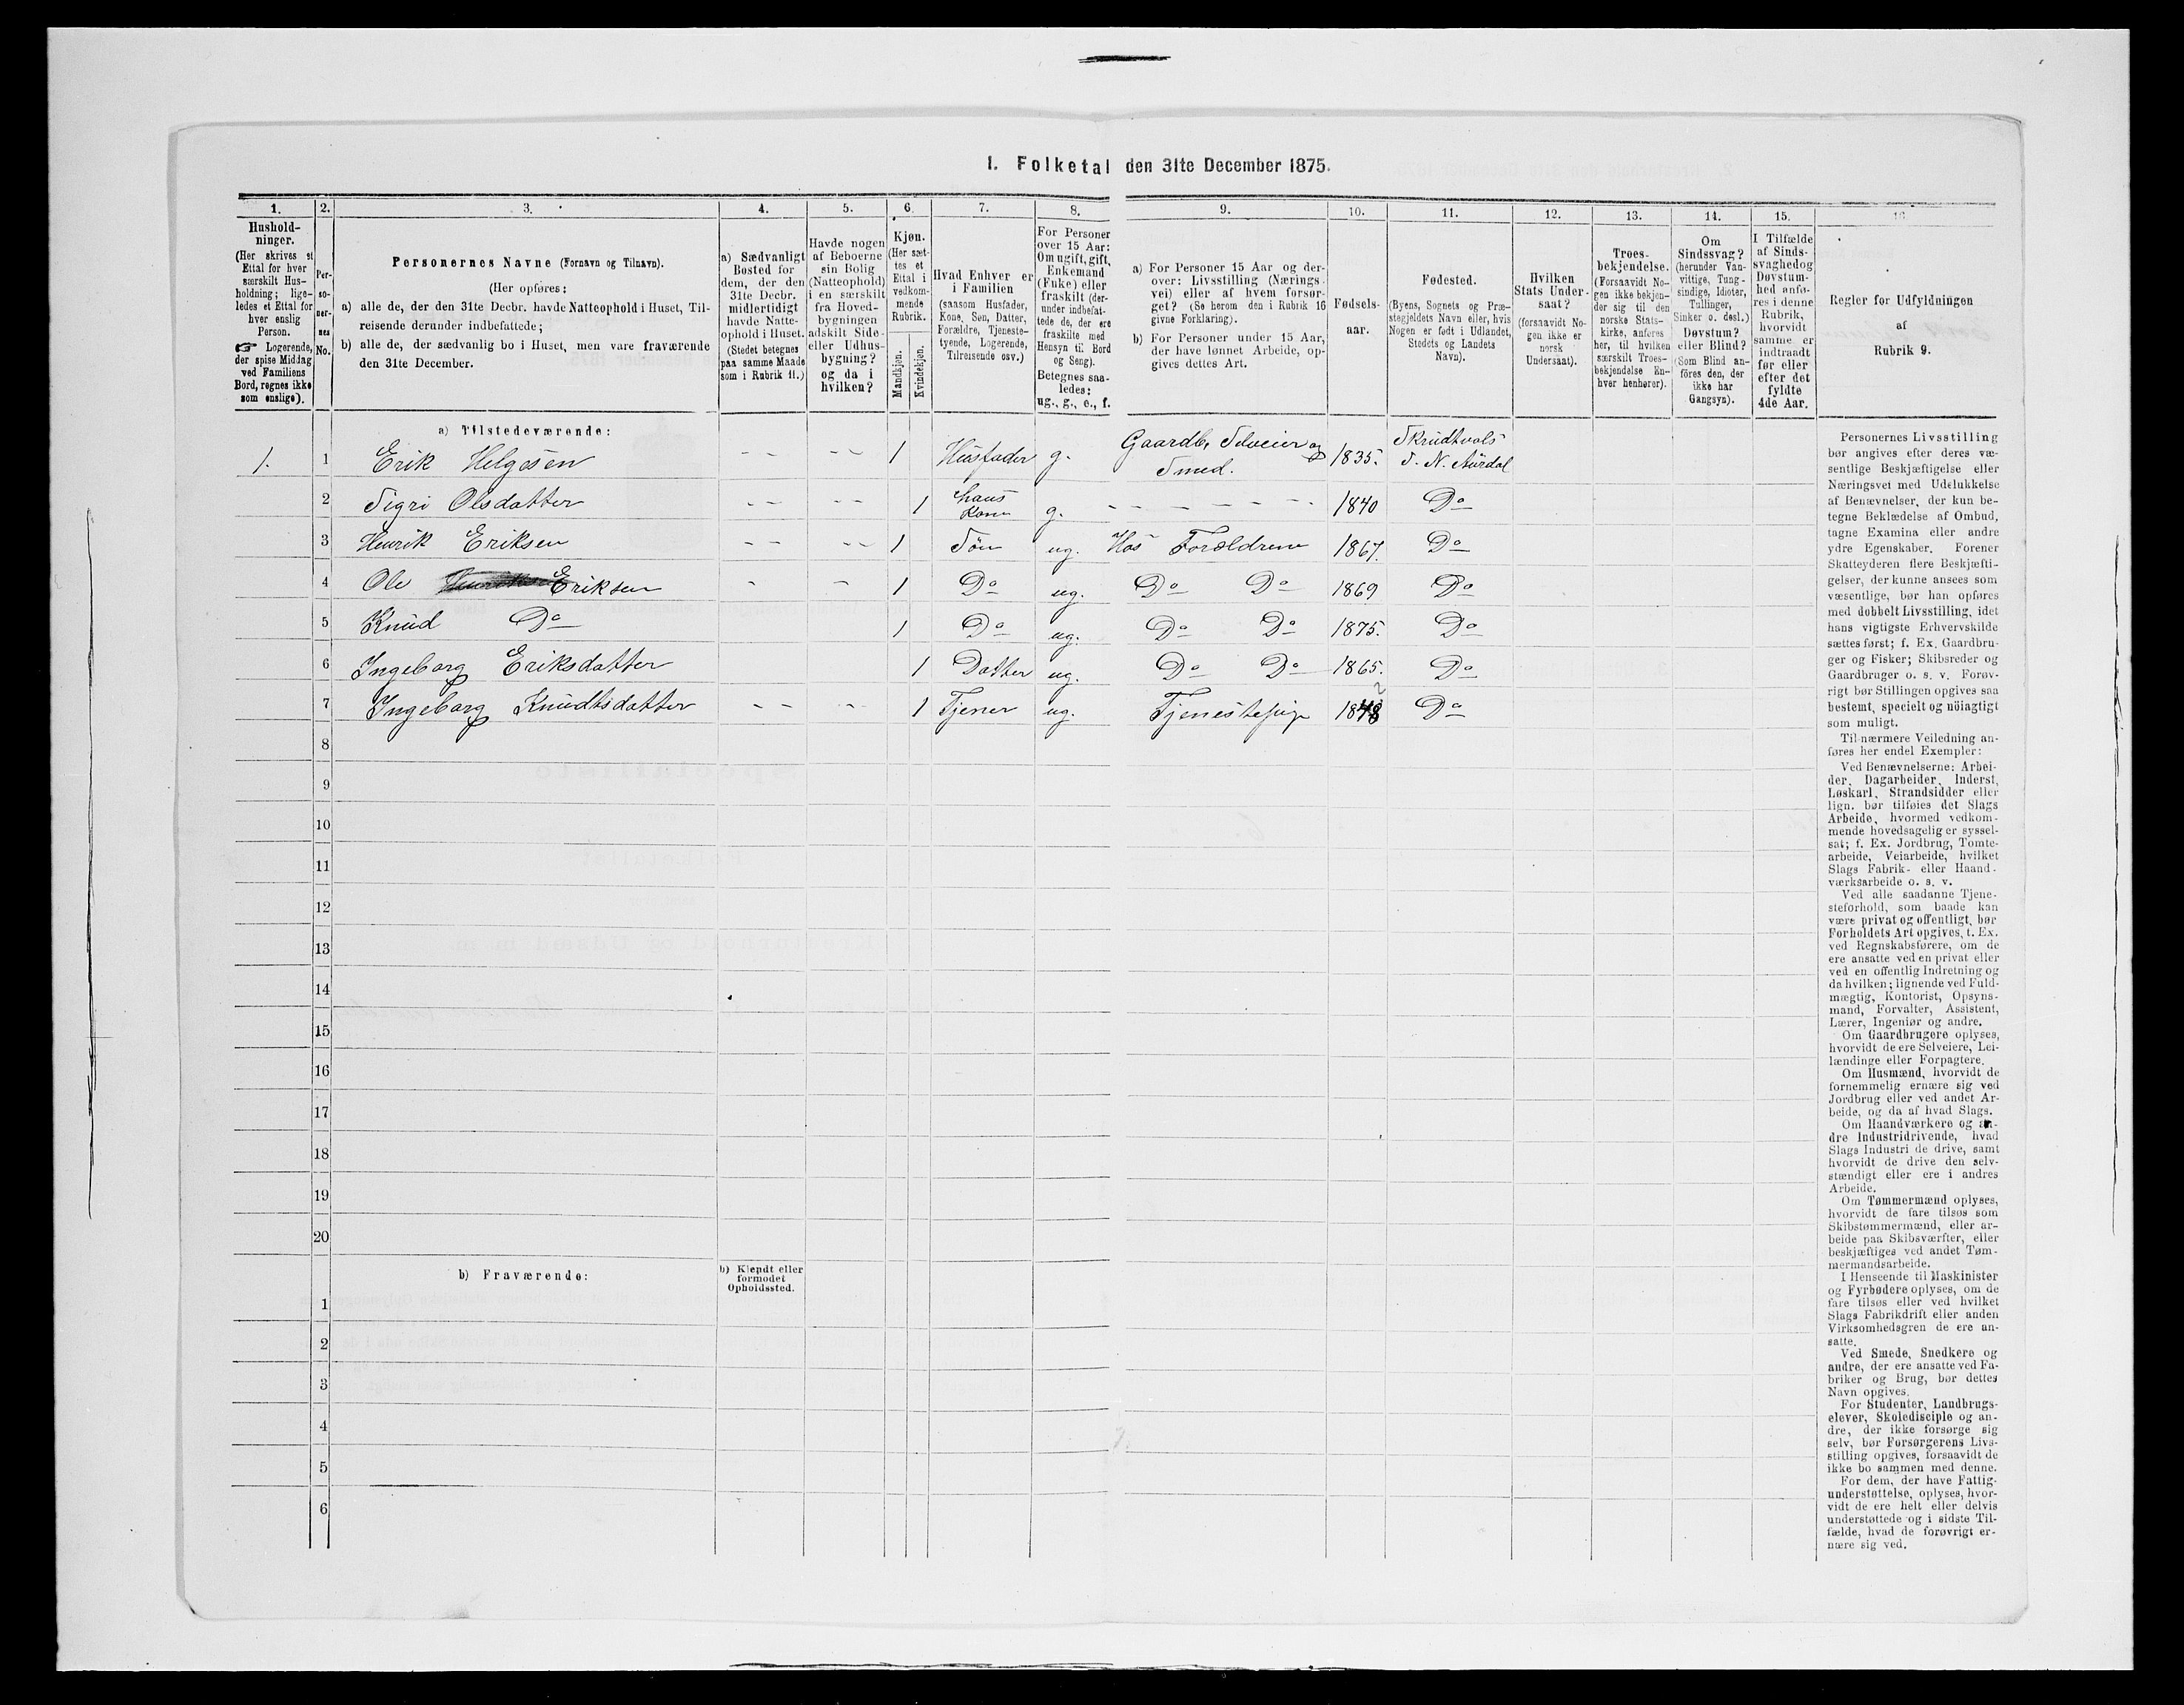 1. Folketal den 31te December 1875.
1. 2. 3. 4. 5. 6. 7. 8. 9. 10. 11. 12. 13. 14. 15. 16
Hushold-
ninger.
(Her skrives et
Ettal for hver
særskilt Hus-
holdning; lige-
ledes et Ettal for
hver enslig
Person.
☞ Logerende,
der spise Middag
ved Familiens
Bord, regnes ikke
som enslige).
Per-
so-
ner-
nes
No.
Personernes Navne (Fornavn og Tilnavn).
(Her opføres:
a) alle de, der den 31te Decbr. havde Natteophold i Huset, Til-
reisende derunder indbefattede;
b) alle de, der sædvanlig bo i Huset, men vare fraværende
den 31te December.
a) Sædvanligt
Bosted for
dem, der den
31te Decbr.
midlertidigt
havde Natte-
ophold i Huset.
(Stedet betegnes
paa samme Maade
som i Rubrik 11.)
Havde nogen
af Beboerne
sin Bolig
(Natteophold)
i en særskilt
fra Hoved-
bygningen
adskilt Side-
eller Udhus-
bygning?
og da i
hvilken?
Kjøn.
(Her sæt-
tes et
Ettal i
vedkom-
mende
Rubrik.
Mandkjøn.
Kvindekjøn.
Hvad Enhver er
i Familien
(saasom Husfader,
Kone, Søn, Datter,
Forældre, Tjeneste-
tyende, Logerende,
Tilreisende osv.)
For Personer
over 15 Aar:
Om ugift, gift,
Enkemand
(Enke) eller
fraskilt (der-
under indbefat-
tede de, der ere
fraskilte med
Hensyn til Bord
og Seng).
Betegnes saa-
ledes:
ug., g., e., f.
a) For Personer 15 Aar og der-
over: Livsstilling (Nærings-
vei) eller af hvem forsør-
get? (Se herom den i Rubrik 16
givne Forklaring).
b) For Personer under 15 Aar,
der have lønnet Arbeide, op-
gives dettes Art.
Fødsels-
aar.
Fødested.
(Byens, Sognets og Præ-
stegjeldets Navn eller, hvis
Nogen er født i Udlandet,
Stedets og Landets
Navn).
Hvilken
Stats Under-
saat?
(forsaavidt No-
gen ikke er
norsk
Undersaat).
Troes-
bekjendelse.
(Forsaavidt No-
gen ikke bekjen-
der sig til den
norske Stats-
kirke, anføres
her, til hvilken
særskilt Troes-
bekjendelse En-
hver henhører).
Om
Sindssvag?
(herunder Van-
vittige, Tung-
sindige, Idioter,
Tullinger,
Sinker o. desl.)
Døvstum?
eller Blind?
(Som Blind an-
føres den, der
ikke har
Gangsyn).
I Tilfælde
af Sinds-
svaghed og
Døvstum-
hed anfø-
res i denne
Rubrik,
hvorvidt
samme er
indtraadt
før eller
efter det
fyldte
4de Aar.
Regler for Udfyldningen
af
Rubrik 9.
a) Tilstedeværende:
1. 1 Erik Helgesen - - - - 1 Husfader g. Gaardb, Selveier og Smed. 1835. Skrudtvols S. N. Aurdal
2 Sigri Olsdatter - - - - 1 hans Kone g. - - - - - - 1840 Do
3 Henrik Eriksen - - - - 1 Søn ug. Hos Forældrene 1867. Do
4 Ole Eriksen - - 1 Do ug. Do Do 1869 Do
5 Knud Do 1 Do ug. Do Do 1875. Do
6 Ingeborg Eriksdatter 1 Datter ug. Do Do 1865. Do
7 Ingeborg Knudtsdatter - - - - 1 Tjener ug. Tjenestepige Do
8
9
10
11
12
13
14
15
16
17
18
19
20
b) Fraværende:
b) Kjendt eller
formodet
Opholdssted.
1
2
3
4
5
6
Personernes Livsstilling
bør angives efter deres væ-
sentlige Beskjæftigelse eller
Næringsvei med Udelukkelse
af Benævnelser, der kun be-
tegne Beklædelse af Ombud,
tagne Examina eller andre
ydre Egenskaber. Forener
Skatteyderen flere Beskjæfti-
gelser, der kunne ansees som
væsentlige, bør han opføres
med dobbelt Livsstilling, idet
hans vigtigste Erhvervskilde
sættes først; f. Ex. Gaardbru-
ger og Fisker; Skibsreder og
Gaardbruger o. s. v. Forøv-
rigt bør Stillingen opgives saa
bestemt, specielt og nöiagtigt
som muligt.
Til nærmere Veiledning an-
føres her endel Exempler:
Ved Benævnelserne: Arbei-
der, Dagarbeider, Inderst,
Løskarl, Strandsidder eller
lign. bør tilføies det Slags
Arbeide, hvormed vedkom-
mende hovedsagelig er syssel-
sat; f. Ex. Jordbrug, Tomte-
arbeide, Veiarbeide, hvilket
Slags Fabrik- eller Haand-
værksarbeide o. s. v.
Ved alle saadanne Tjene-
steforhold, som baade kan
være privat og offentligt, bør
Forholdets Art opgives, f. Ex.
ved Regnskabsførere, om de
ere ansatte ved en privat eller
ved en offentlig Indretning og
da hvilken; lignende ved Fuld-
mægtig, Kontorist, Opsyns-
mand, Forvalter, Assistent,
Lærer, Ingeniør og andre.
Om Gaardbrugere oplyses,
hvorvidt de ere Selveiere, Lei-
lændinge eller Forpagtere.
Om Husmænd, hvorvidt de
fornemmelig ernære sig ved
Jordbrug eller ved andet Ar-
beide, og da af hvad Slags.
Om Haandværkere og an-
dre Industridrivende, hvad
Slags Industri de drive, samt
hvorvidt de drive den selv-
stændigt eller ere i andres
Arbeide.
Om Tømmermænd oplyses,
hvorvidt de fare tilsøs som
Skibstømmermænd, eller ar-
beide paa Skibsværfter, eller
beskjæftiges ved andet Tøm-
mermandsarbeide.
I Henseende til Maskinister
og Fyrbødere oplyses, om de
fare tilsøs eller ved hvilket
Slags Fabrikdrift eller anden
Virksomhedsgren de ere an-
satte.
Ved Smede, Snedkere og
andre, der ere ansatte ved Fa-
briker og Brug, bør dettes
Navn opgives.
For Studenter, Landbrugs-
elever, Skoledisciple og an-
dre, der ikke forsørge sig
selv, bør Forsørgerens Livs-
stilling opgives, forsaavidt de
ikke bo sammen med denne.
For dem, der have Fattig-
understøttelse, oplyses, hvor-
vidt de ere helt eller delvis
understøttede og i sidste Til-
fælde, hvad de forøvrigt er-
nære sig ved.